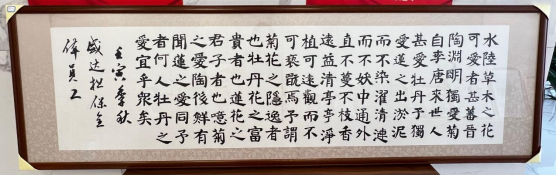 水陸草木之花
可愛者甚蕃晉
陶淵明獨愛菊
自李唐來世人
甚愛牡丹予獨
愛蓮之出淤泥
而不染濯清漣
而不妖中通外
直不蔓不枝香
遠益清亭亭淨
植可遠觀而不
可褻翫焉予謂
菊花之隱逸者
也牡丹花之富
貴者也蓮花之
君子者也噫菊
之愛陶後鮮有
聞蓮之愛同予
者何人牡丹之
愛宜乎眾矣
壬寅季秋
盛达担保全
体員工